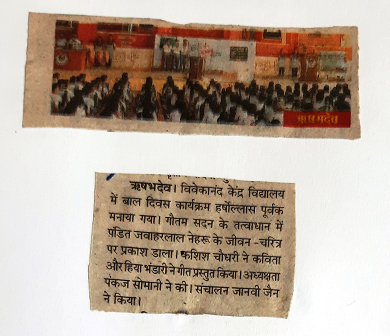 ऋषभदेव
ऋषभदेव। विवेकानंद केंद्र विद्यालय
में बाल दिवस कार्यक्रम हर्षोल्लास पूर्वक
मनाया गया। गौतम सदन के तत्वाधान में
पंडित जवाहरलाल नेहरू के जीवन -चरित्र
पर प्रकाश डाला। कशिश चौधरी ने कविता
और हिया भंडारी ने गीत प्रस्तुत किया। अध्यक्षता
पंकज सोमानी ने की। संचालन जानवी जैन
ने किया।